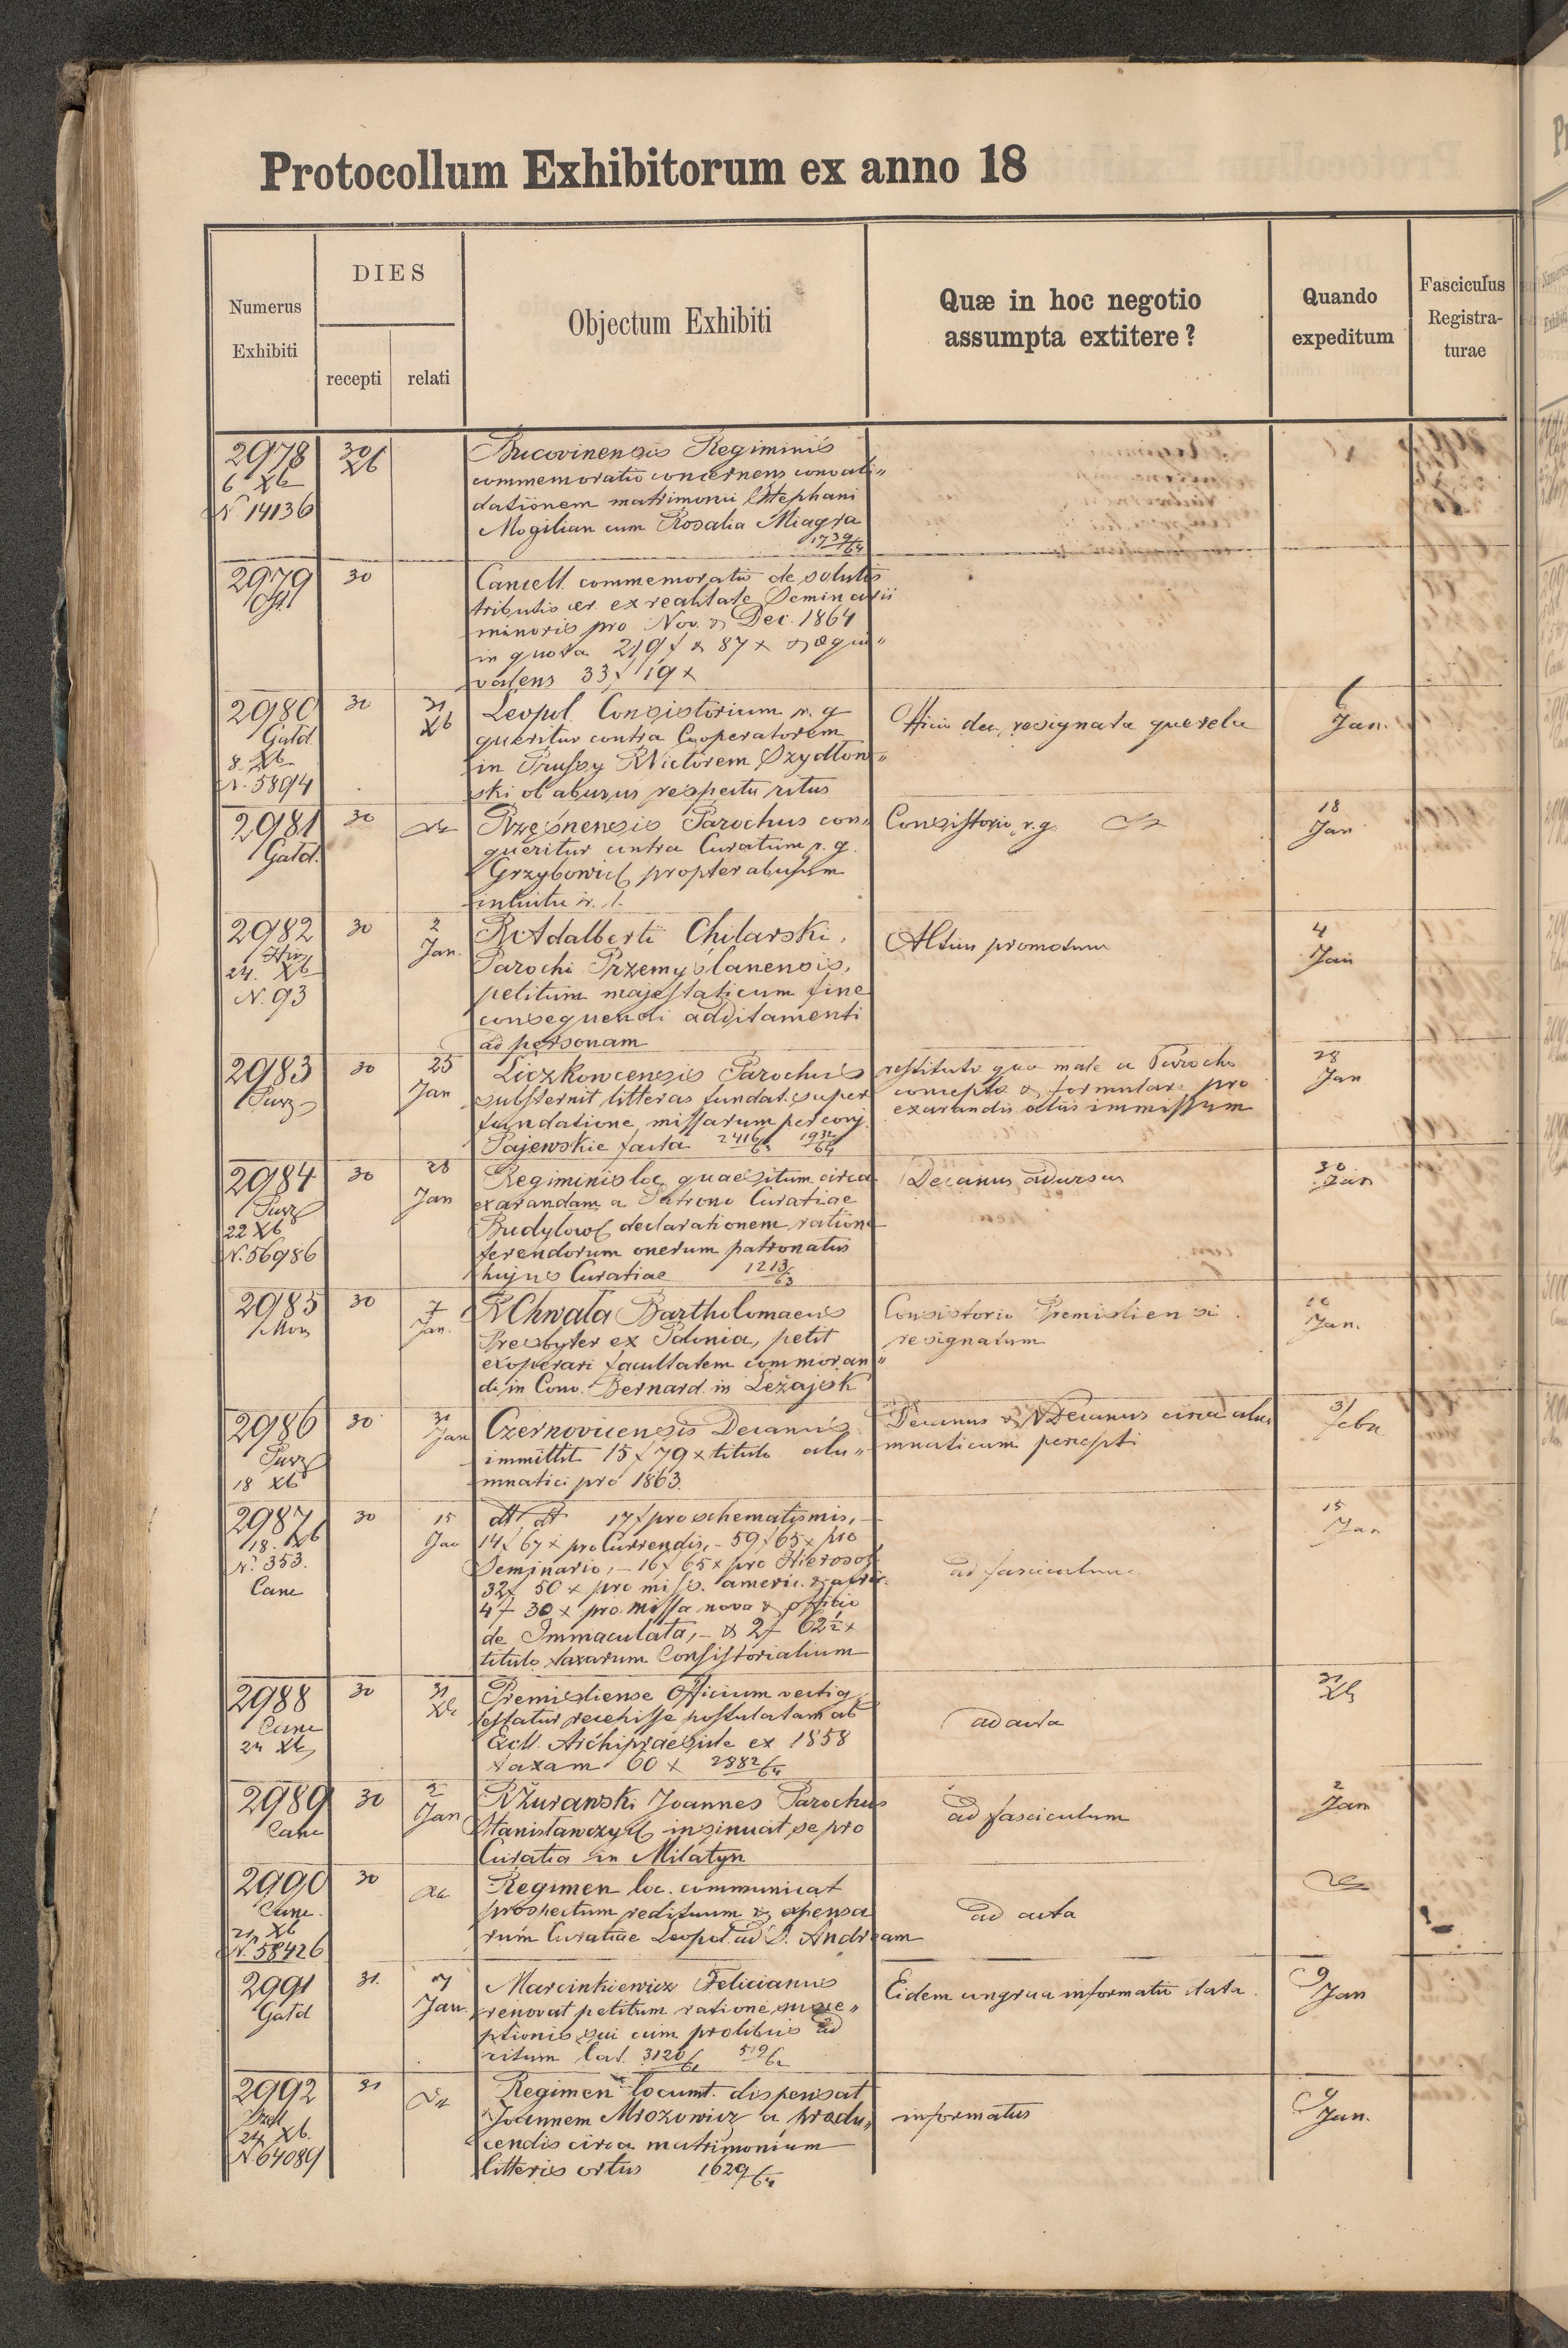 Protocollum Exhibitorum ex anno 18
Numerus Exhibiti
DIES
recepti relati
Objectum Exhibiti
Quæ in hoc negotio
assumpta extitere?
Quando
expeditum
Fasciculus
Registra-
turae
2978 30 Bucovinensis Regiminis
6 Xb Xb commemoratio concernens convali„
N 14136 dationem matrimonii Stephani
Mogilian cum Rosalia Miagra
1739/64
2979 30 Cancell. commemoratio de solutis
tributis aer. ex realitate Seminarii
minoris pro Nov. & Dec. 1864
in quota 219 f & 87 x & aequi„
valens 33 f 19 x
2980 30 31 Leopol. Consistorium r. g. Officio dec. resignata querela 6
Gatd Xb queritur contra Cooperatorem Jan.
8. Xb in Prussy R Victorem Szydłow„
N. 5894 ski ob abusus respectu ritus
2981 30 Rzęsnensis Parochus con„ Consistorio r. g. 18
Gatd. queritur contra Curatum r. g. Jan
Grzybowic propter abusum
intuitu r. l.
2982 30 2 R Adalberti Chilarski, Altius promotum 4
Jan. Parochi Przemyślanensis, Jan
24. Xb petitum majestaticum fine
N. 93 consequendi additamenti
ad personam
2983 30 25 Liczkowcensis Parochus restituto qua male a Parocho 28
Jan substernit litteras fundat. super concepto & formulare pro Jan
fundatione missarum per conj. exarandis aliis immissum
Pajewskie facta 2416/63 1932/64
2984 30 28 Regiminis loc. quaesitum circa Decanus adursus 30
Jan exarandam a Patrono Curatiae Jan
22 Xb Budylow declarationem ratione
N. 56986 ferendorum onerum patronatus
hujus Curatiae 1213/63
2985 30 7 R Chwała Bartholomaeus Consistorio Premisliensi
Jan. Presbyter ex Polonia, petit resignatum Jan.
exoperari facultatem commoran„
di in Conv. Bernard. in Leżajsk
2986 30 31 Czernovicensis Decanus Decanus & VDecanus circa alu„ 3/
Jan immittit 15 f 79 x titulo alu„ mnaticum percepti febr
18 Xb mnatici pro 1863.
2987 30 15 dtt dtt 17 f pro schematismis, 15
18. Xb Jan 14 f 67 x pro Currendis, – 59 f 65 x pro Jan
N. 353. Seminario, – 16 f 65 x pro Hierosol. ad fasciculum
Canc 32 f 50 x pro miss. americ. & afric.
4 f 30 x pro missa nova & officio
de Immaculata, – & 2 f 62½ x
titulo taxarum Consistorialium
2988 30 31 Premisliense Officium vectig. 31
Canc Xb testatur recepisse postulatam ab ad acta Xb
24 Xb Excll. Archipraesule ex 1858
taxam 60 x 2882/64
2989 30 2 R Żurawski Joannes Parochus 2
Canc Jan Stanisławczyk insinuat se pro ad fasciculum Jan
Curatia in Milatyn
2990 30 Regimen loc. communicat
Canc. prospectum redituum & expensa ad acta
21 Xb rum Curatiae Leopol. ad S. Andream
N. 58426
2991 31. 7 Marcinkiewicz Felicianus Eidem congrua informatio data. 9
Gatd Jan. renovat petitum ratione susce„ Jan
ptionis sui cum prolibus ad
ritum lat. 3120/61 519/62
2992 31 Regimen locumt. dispensat 9
24 Xb. Joannem Mrozowicz a produ„ informatus Jan.
N. 64089 cendis circa matrimonium
litteris ortus 1629/64